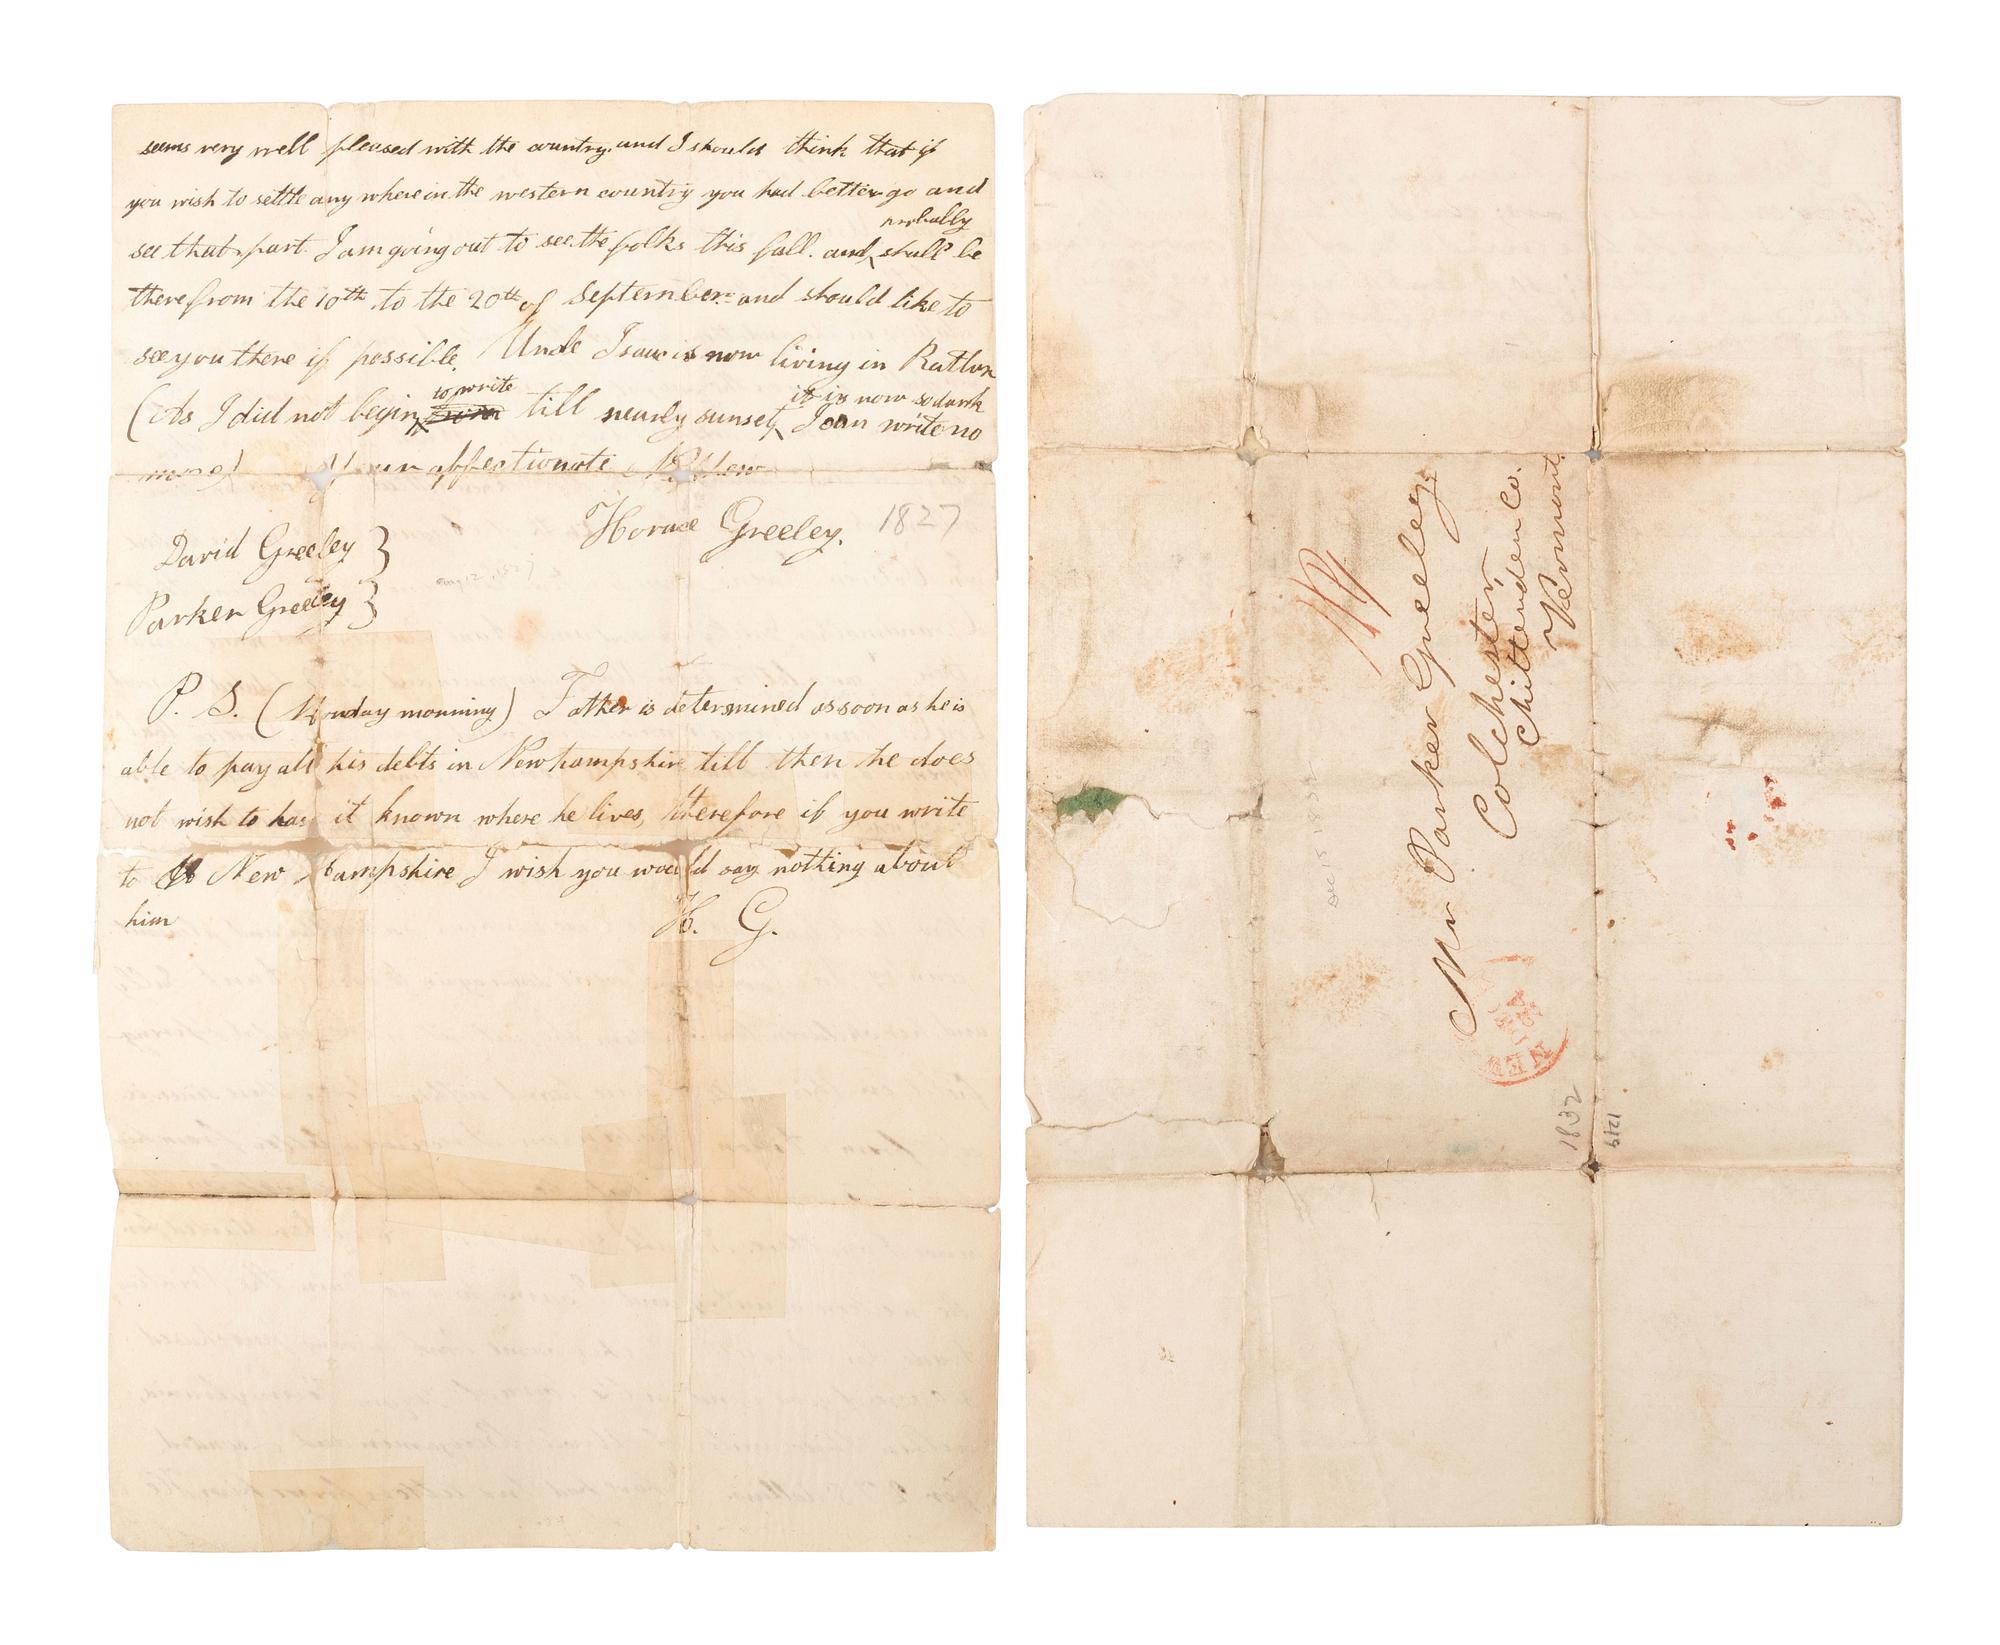 seems very well pleased with the country, and I should think that if
you wish to settle any where in the western country you had better go and
probably
see that part. I am going out to see the folks this fall. and shall be
there from the 10th to the 20th of September and should like to
see you there if possible. Uncle Isaac is now living in
to write it is now so dark
(As I did not begin till nearly sunset, I can write no
more) Your affectionate Nephew
Horace Greeley. 1827
David Greeley }
Parker Greeley }
P. S. (Monday morning) Father is determined as soon as he is
able to pay all his debts in Newhampshire till then he does
not wish to have it known where he lives, therefore if you write
to New hampshire I wish you would say nothing about
him H. G.
Mr Parker Greeley
Colchester,
Chittenden Co.
Vermont.
Dec 15 1832
1832
1219